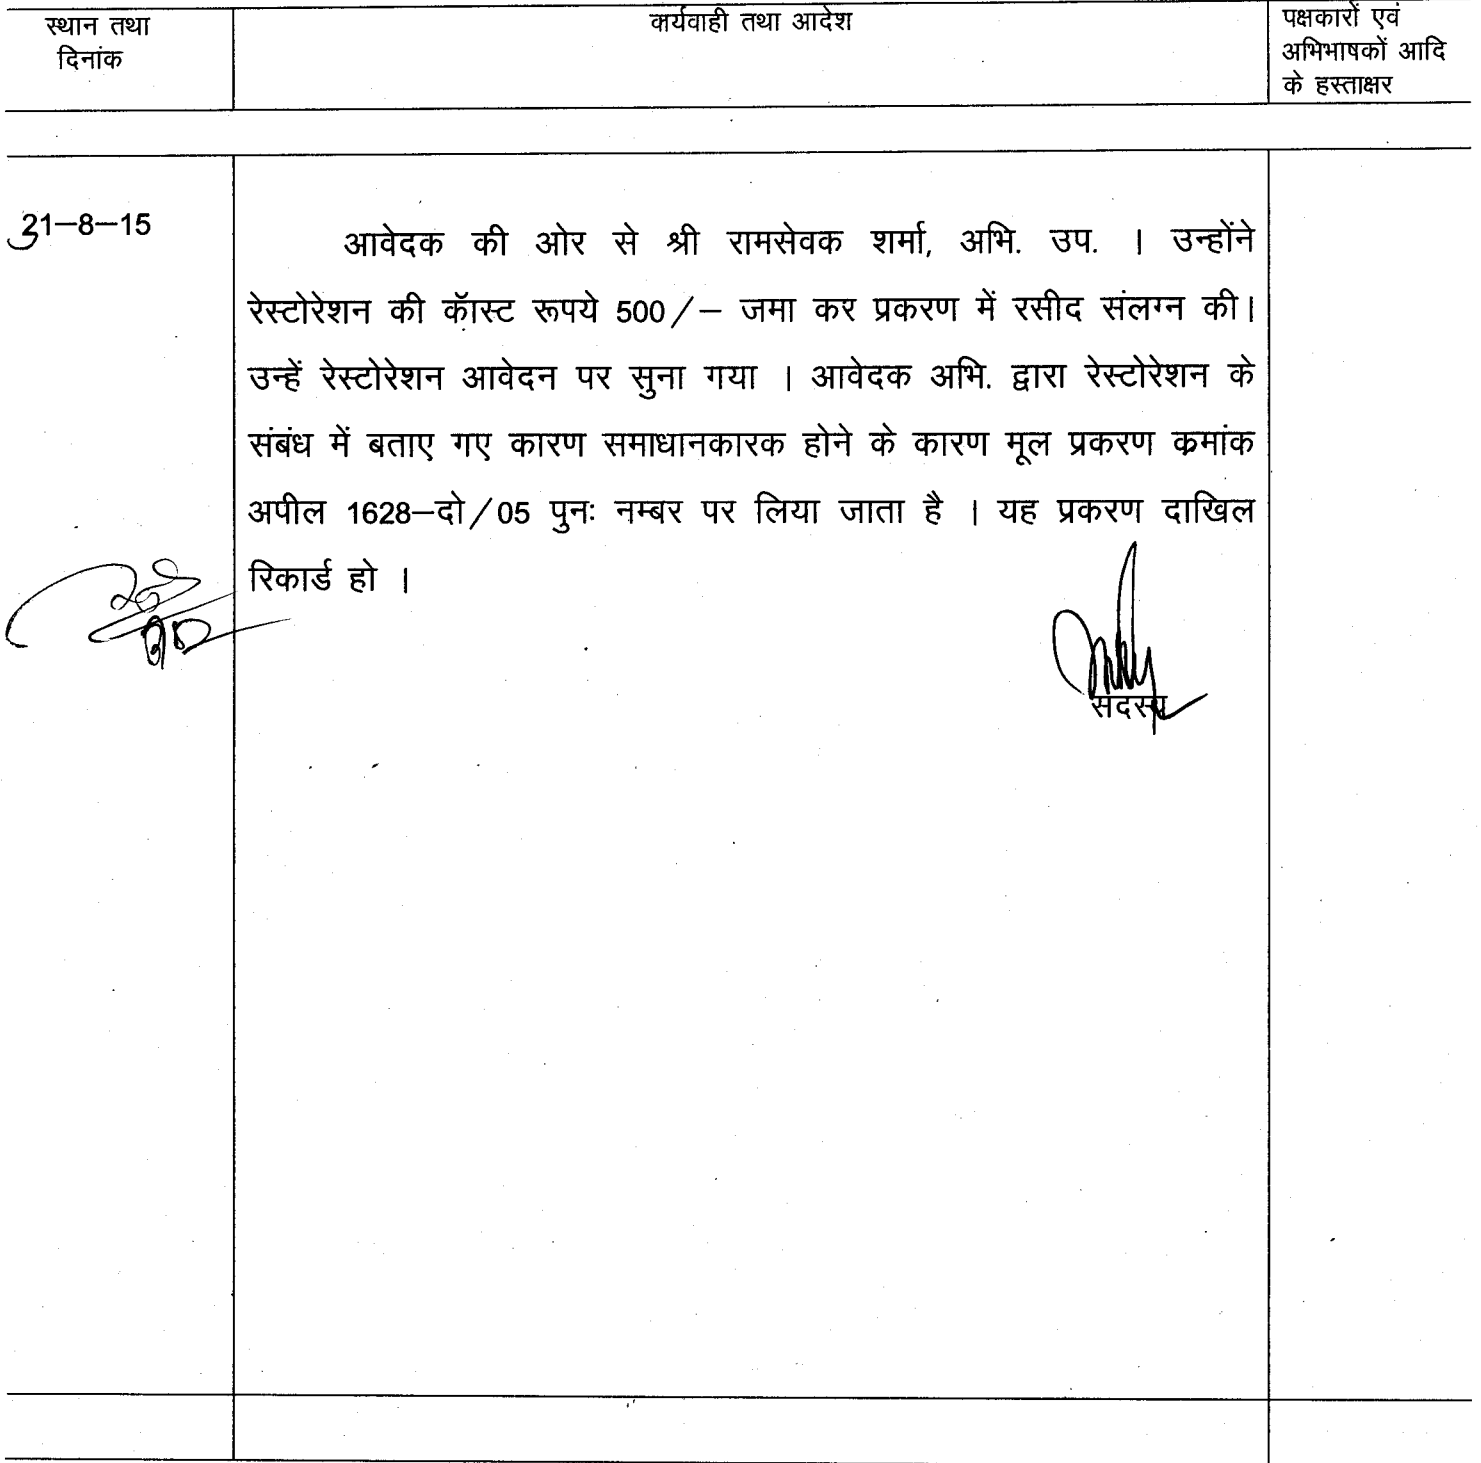 स्थान तथा
दिनांक
कार्यवाही तथा आदेश
पक्षकारों एवं
अभिभाषकों आदि
के हस्ताक्षर
31–8–15
आवेदक की ओर से श्री रामसेवक शर्मा, अभि. उप. । उन्होंने
रेस्टोरेशन की कॅास्ट रूपये 500/– जमा कर प्रकरण में रसीद संलग्न की।
उन्हें रेस्टोरेशन आवेदन पर सुना गया । आवेदक अभि. द्वारा रेस्टोरेशन के
संबंध में बताए गए कारण समाधानकारक होने के कारण मूल प्रकरण क्रमांक
अपील 1628–दो/05 पुनः नम्बर पर लिया जाता है । यह प्रकरण दाखिल
रिकार्ड हो ।
सदस्य